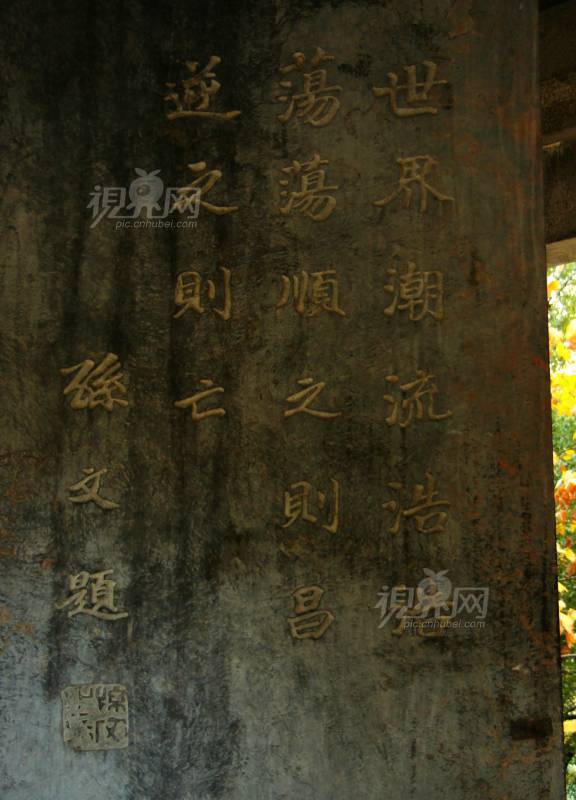 世界潮流浩浩
蕩蕩順之則昌
逆之則亡
孫文題
視界网
pic.cnhubei.com
視界网
pic.cnhubei.com